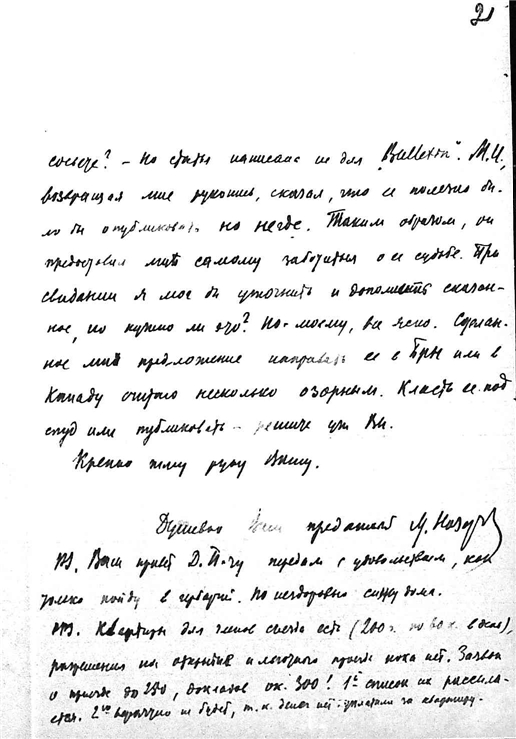 21
статья написана не для „Bulletin". М.И.,
возвращая мне рукопись, сказал, что ее полезно бы-
ло бы опубликовать но негде. Таким образом, он
предоставил мне самому заботиться о ее судьбе. При
свидании я мог бы уточнить и дополнить сказан-
ное, но нужно ли это? По-моему, все ясно. Сделан-
ное мне предложение направить ее в или в
Канаду считаю несколько озорным. Класть ее под
спуд или публиковать – решите уж Вы.
Крепко жму руку Вашу.
Душевно Вам преданный М.
Ваш привет Д. передам с удовольствием, как
только пойду в гербарий. По нездоровью сижу дома.
Квартиры для членов съезда есть (200
разрешения на открытие и льготного проезда пока нет. Заявок
о приезде до 250, докладов ок. 300! 1й список их рассыла-
ется. 2го вероятно не будет, т.к. денег нет: уплатили за квартиру.